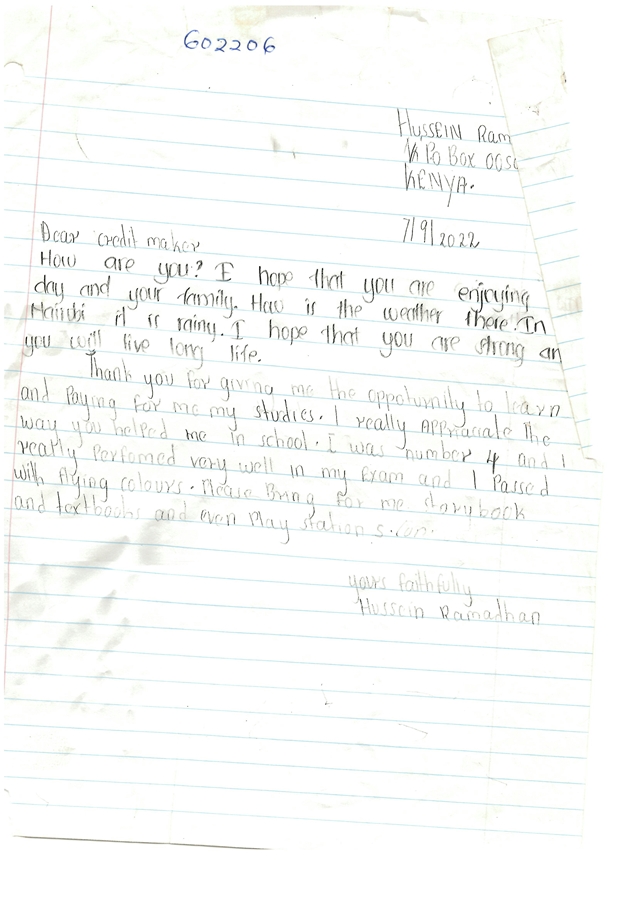 602206
HUSSEIN Ram
Po Box 00
KENYA.
7/9/2022
Dear credit maker
How are you? I hope that you are enjoying
day and your family. Hau is the weather there. In
Nairobi it is rainy. I hope that you are strong an
you will live long life.
Thank you for giving me the oppotunity to learn
and Paying for me my studies. I really APPraciate the
way you helped me in school. I was number 4 and I
really Perfomed very well in my Exam and I Passed
with flying colours. Please Bring for me storybook
and textbooks and even Play station
yours faithfully
Hussein Ramadhan